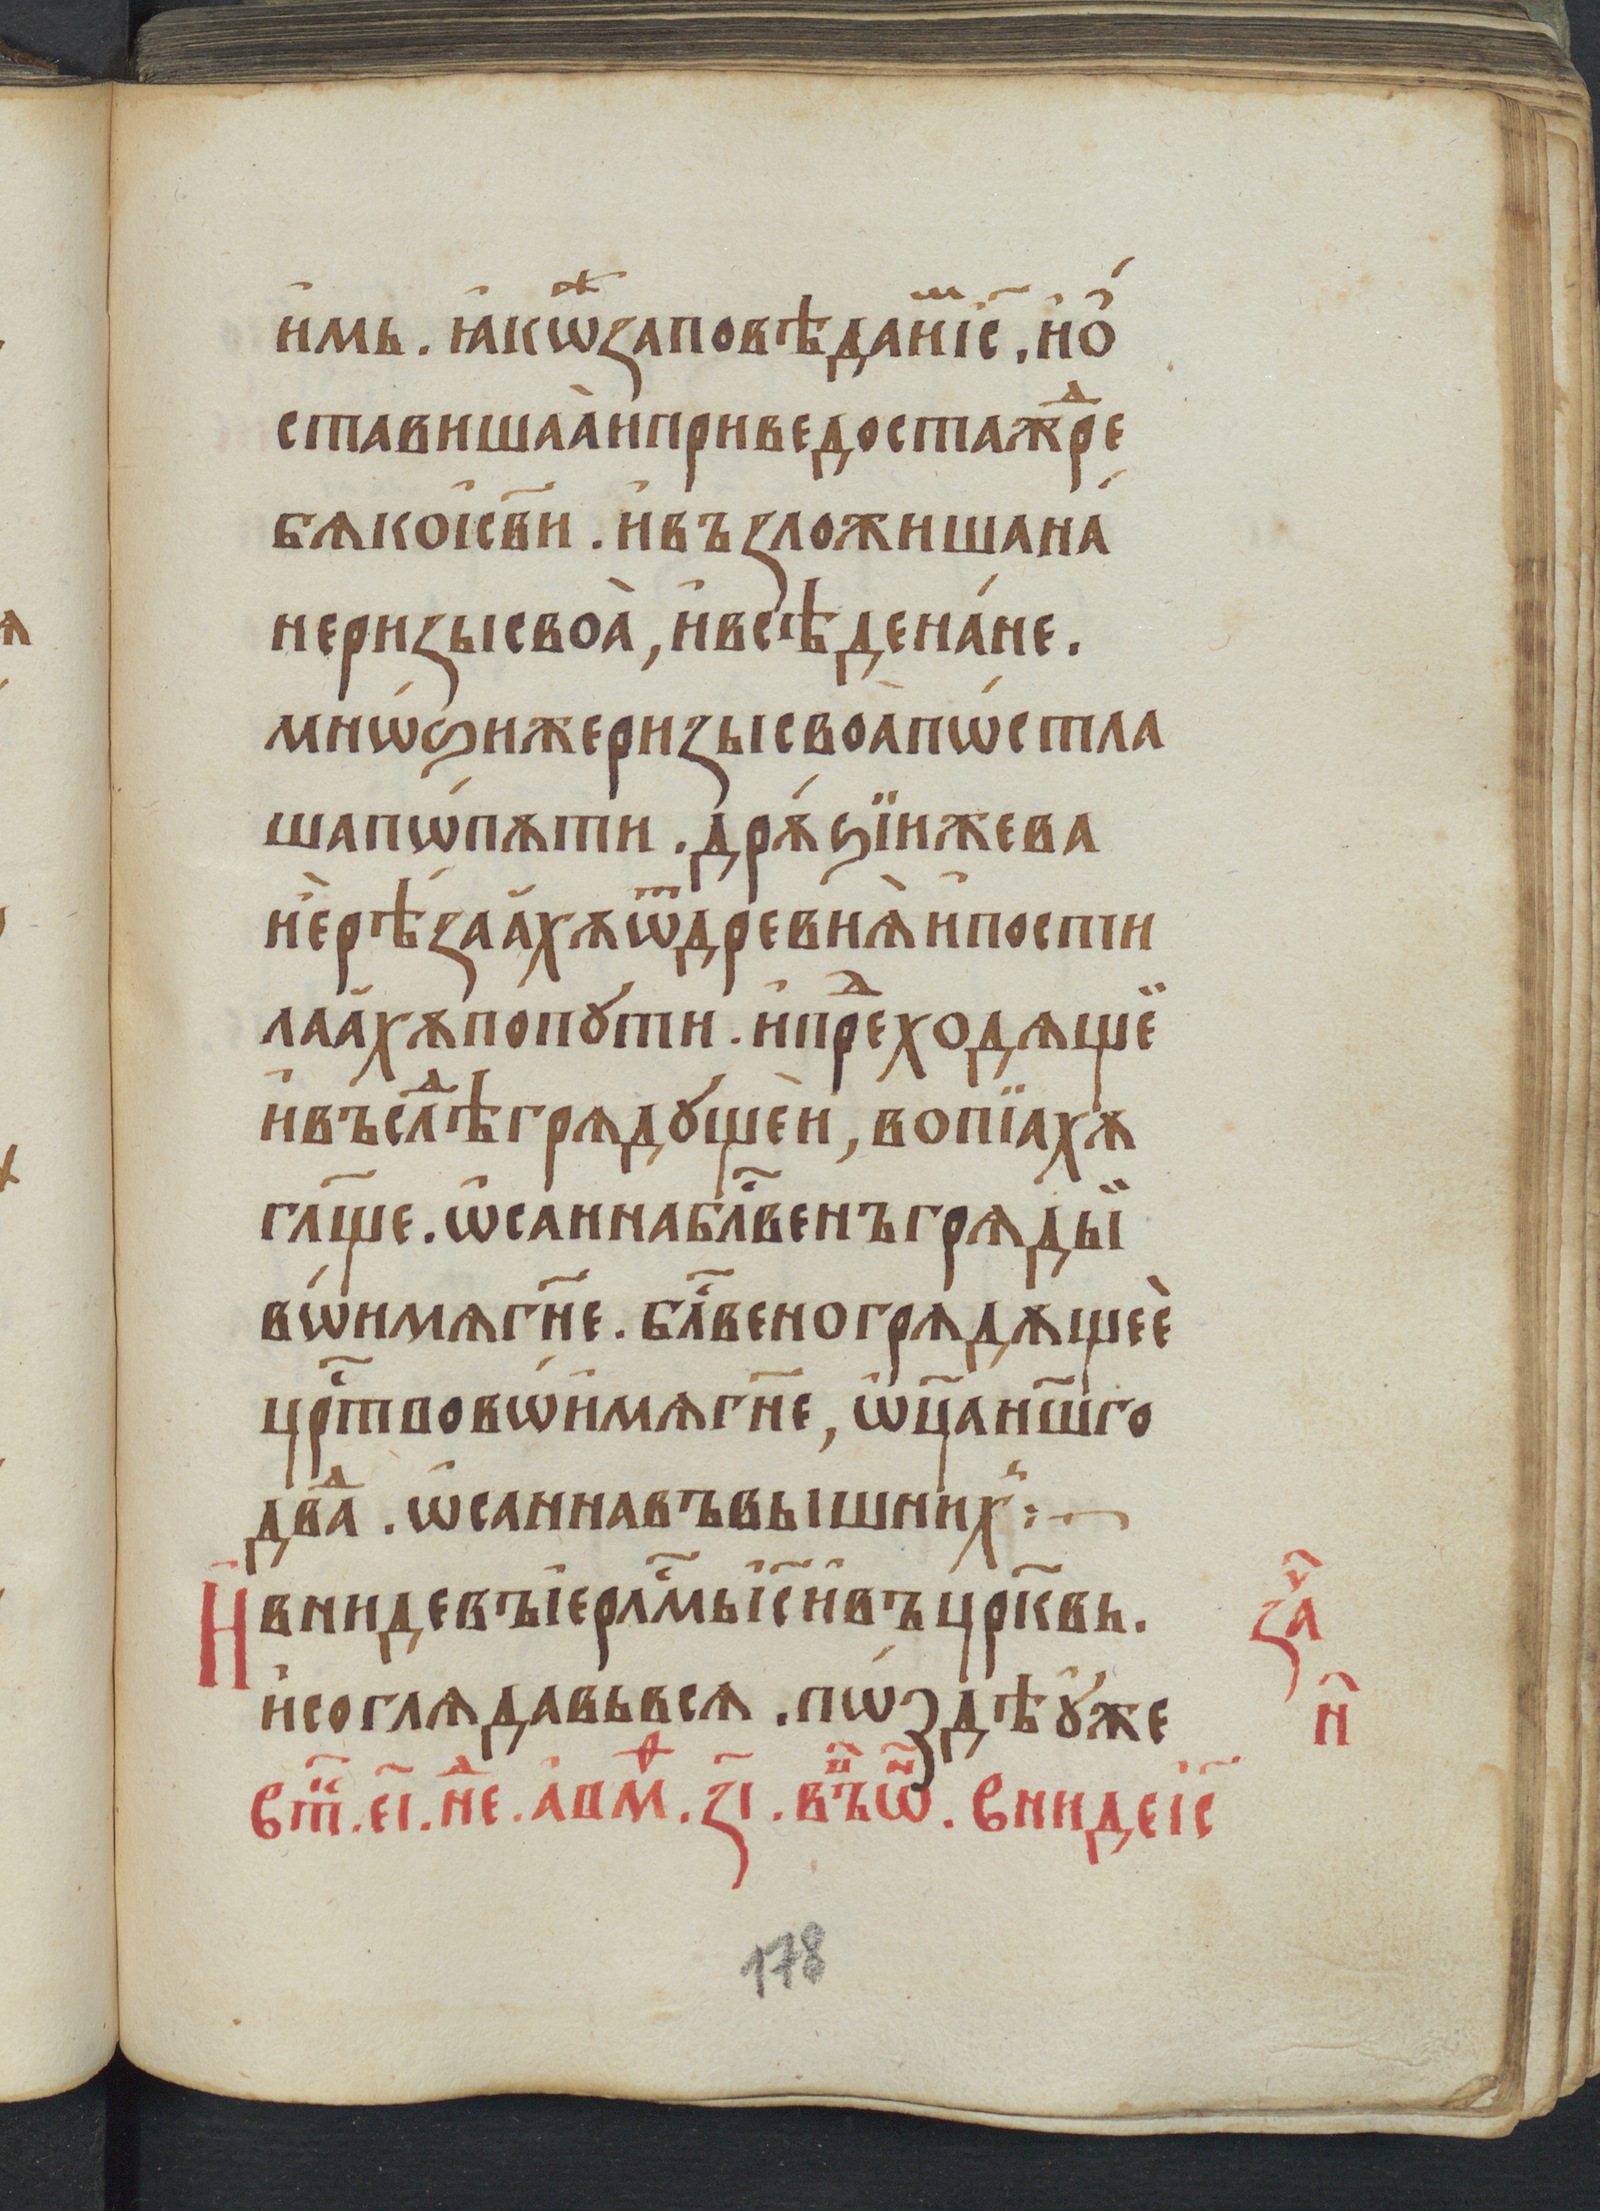 и҆мь . ꙗ҆кѡⷤзаповѣданїⷨ҇с . и҆ѻ҆́
ставишаа̀иприведостажⷣре
бѧкоі҆с҃ви . и҆възложишана́
нєризысвоа̀ , и҆всѣдена́не .
мнѡ́ѕижеризысвоа̀пѡ́стла
шапѡ́пѫти . дрѫ́ѕїижева
нѐрѣзаа́хѫѿдревиѧ̀и҆пости
лаа́хѫпопꙋ́ти . и҆преⷣходѧщеї
и҆въслѣⷣгрѧдꙋ́щѐи , вопїахѫ
гл҃ще . ѡ҆саннабл҃ⷭвенъгрѧдыї
вѡ́имѧгн҃е . бл҃ⷭвеногрѧдѫщеѐ
цр҃ⷭтвовѡ́и҆мѧгн҃е , ѡ҆ц҃анш҃го
дв҃аⷣ . ѡ҆саннавъвышних̾ :~
И҆ внидевъі҆ерлⷭ҇мьі҆с҃и҆въцр҃квь .
и҆соглѧдавьвсѧ . пѡ́здѣꙋ҆́же
вт҃ . еі҃ . нⷣе . а҆пмⷴ . зі҃ . въⷩ҇ѡ҃ . внидеі҆с҃
за҃ⷱ
н҃
178